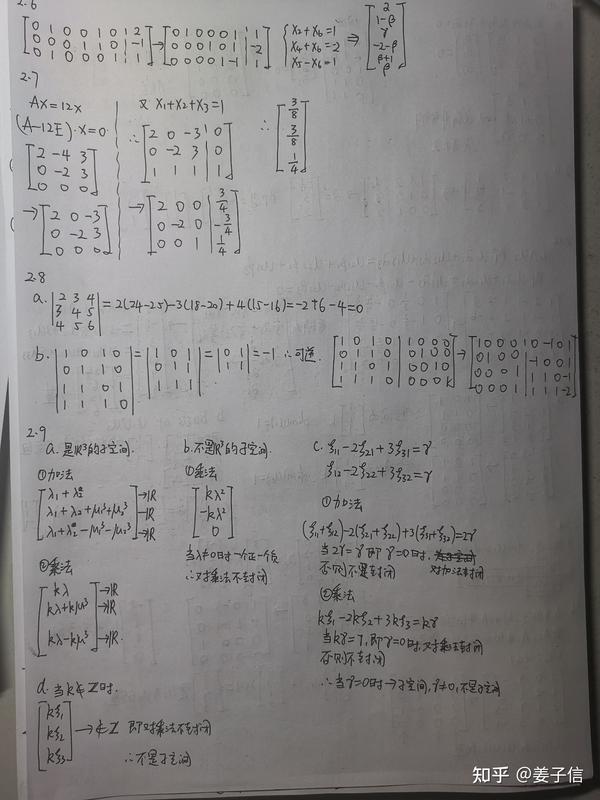 2.6
[0 1 0 0 1 0 1 2; 0 0 0 1 1 0 -1; 0 1 0 0 0 1 1] → [0 1 0 0 0 1 | 1; 0 0 0 1 0 1 | -2; 0 0 0 0 1 -1 | 1] { x₂+x₆=1 x₄+x₆=-2 x₅-x₆=1 ⇒ [2 1-β γ -2-β β+1 β]
2.7
Ax=12x
(A-12E)·x=0
[2 -4 3; 0 -2 3; 0 0 0]
→ [2 0 -3; 0 -2 3; 0 0 0]
又 x₁+x₂+x₃=1
∴ [2 0 -3 | 0; 0 -2 3 | 0; 1 1 1 | 1] ∴ [3/8 3/8 1/4]
→ [2 0 0 | 3/4; 0 -2 0 | -3/4; 0 0 1 | 1/4]
2.8
a. |2 3 4; 3 4 5; 4 5 6| = 2(24-25)-3(18-20)+4(15-16)=-2+6-4=0
b. |1 0 1 0; 0 1 1 0; 1 1 0 1; 1 1 1 0| = |1 0 1; 0 1 1; 1 1 1| = |0 1; 1 1| = -1 ∴可逆. [1 0 1 0 | 1 0 0 0; 0 1 1 0 | 0 1 0 0; 1 1 0 1 | 0 0 1 0; 1 1 1 0 | 0 0 0 1] → [1 0 0 0 | 0 -1 0 1; 0 1 0 0 | -1 0 0 1; 0 0 1 | 1 1 0 -1; 0 0 0 1 | 1 1 1 -2]
2.9
a. 是R³的子空间.
①加法
→R
→R
→R
②乘法
[kλ →R
kλ+kμ³ →R
kλ-kμ³] →R
b. 不是R³的子空间.
①乘法
[kλ² -kλ² 0]
当λ≠0时一个正一个负
∴对乘法不封闭
c. ξ₁₁-2ξ₂₁+3ξ₃₁=γ
ξ₁₂-2ξ₂₂+3ξ₃₂=γ
①加法
(ξ₁₁+ξ₁₂)-2(ξ₂₁+ξ₂₂)+3(ξ₃₁+ξ₃₂)=2γ
当2γ=γ即γ=0时.
否则不是封闭 对加法封闭
②乘法
kξ₁-2kξ₂+3kξ₃=kγ
当kγ=γ,即γ=0时,对乘法封闭
否则不封闭
∴当γ=0时→子空间,γ≠0,不是子空间
d. 当k∉Z时.
[kξ₁ kξ₂ kξ₃] → ∉Z 即对乘法不封闭
∴不是子空间
知乎 @姜子信